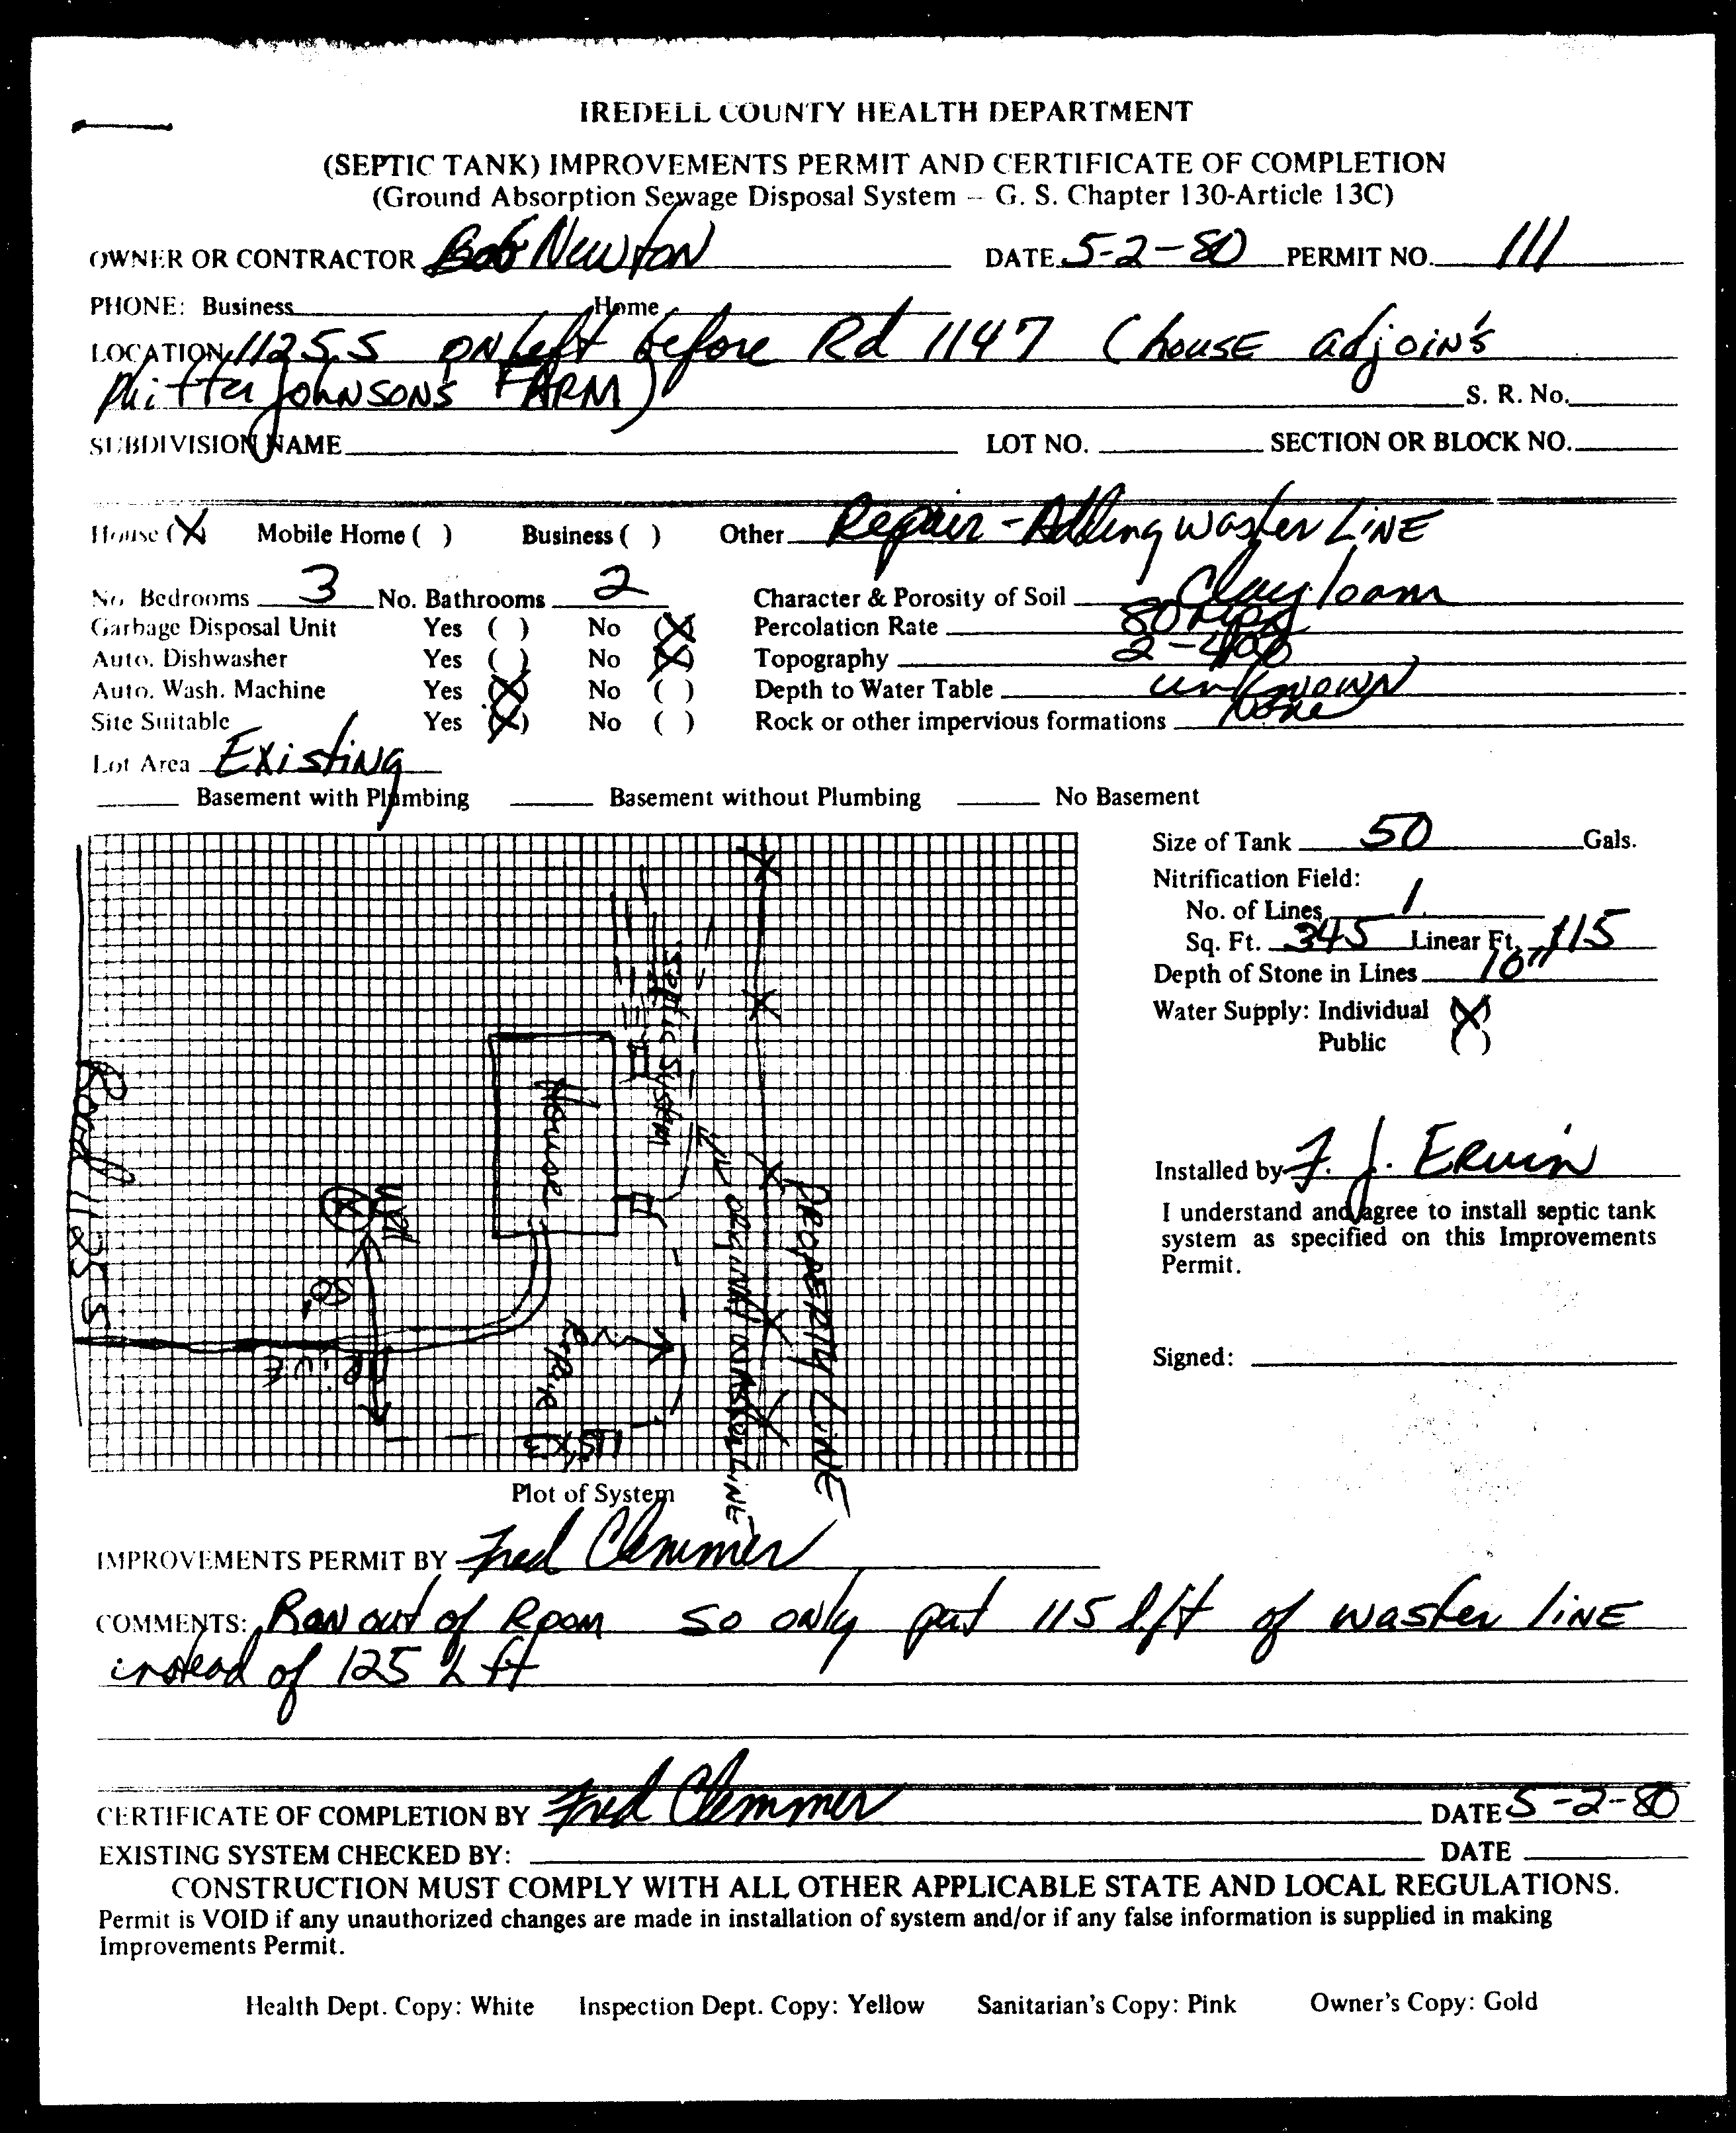 IREDELL COUNTY HEALTH DEPARTMENT
(SEPTIC TANK) IMPROVEMENTS PERMIT AND CERTIFICATE OF COMPLETION
(Ground Absorption Sewage Disposal System – G. S. Chapter 130-Article 13C)
OWNER OR CONTRACTOR Bob Newton DATE 5-2-80 PERMIT NO. 111
PHONE: Business Home
LOCATION 1125.S ON Left before Rd 1147 (house adjoin's
JOHNSON'S FARM) S. R. No.
SUBDIVISION NAME LOT NO. SECTION OR BLOCK NO.
House (X) Mobile Home ( ) Business ( ) Other Repair - Adding waster LINE
No. Bedrooms 3 No. Bathrooms 2 Character & Porosity of Soil Clay loam
Garbage Disposal Unit Yes ( ) No (X) Percolation Rate 80
Auto. Dishwasher Yes ( ) No (X) Topography 2-4%
Auto. Wash. Machine Yes (X) No ( ) Depth to Water Table unknown
Site Suitable Yes (X) No ( ) Rock or other impervious formations None
Lot Area Existing
Basement with Plumbing Basement without Plumbing No Basement
Size of Tank 50 Gals.
Nitrification Field:
No. of Lines 1
Sq. Ft. 345 Linear Ft. 115
Depth of Stone in Lines 10"
Water Supply: Individual (X)
Public ( )
Installed by F. J. Ervin
I understand and agree to install septic tank
system as specified on this Improvements
Permit.
Signed:
Road 1125 S
Well
80'
Drive
House
Septic System
ORGINAL WASTER LINE
PROPERTY LINE
115X3
Plot of System
IMPROVEMENTS PERMIT BY Fred Clemmer
COMMENTS: Ran out of Room so only put 115 l/ft of waster line
instead of 125 L ft
CERTIFICATE OF COMPLETION BY Fred Clemmer DATE 5-2-80
EXISTING SYSTEM CHECKED BY: DATE
CONSTRUCTION MUST COMPLY WITH ALL OTHER APPLICABLE STATE AND LOCAL REGULATIONS.
Permit is VOID if any unauthorized changes are made in installation of system and/or if any false information is supplied in making
Improvements Permit.
Health Dept. Copy: White Inspection Dept. Copy: Yellow Sanitarian's Copy: Pink Owner's Copy: Gold